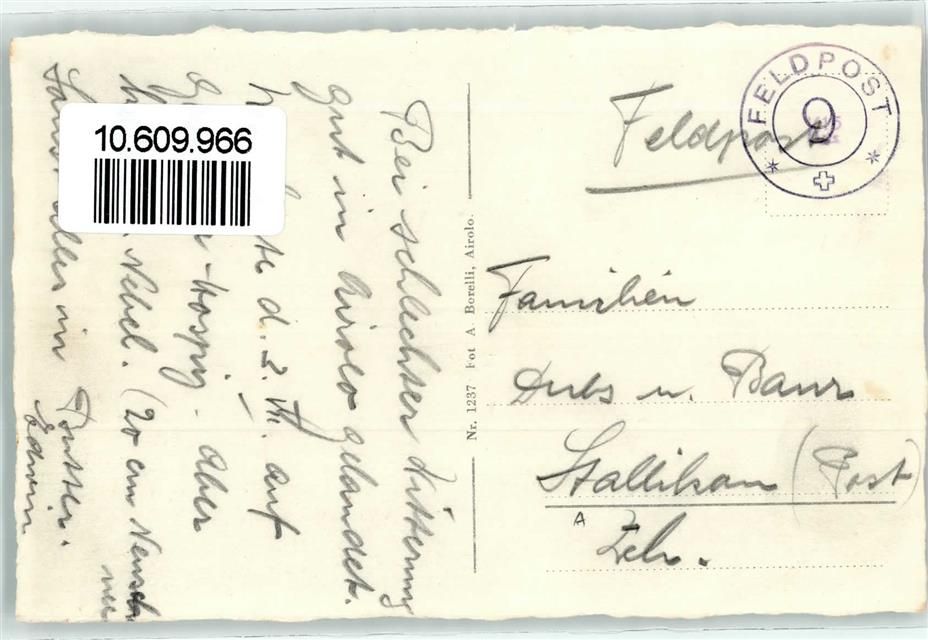 Bei schlechter Witterung
gut in Airolo gelandet.
d. 2. VII. auf
-Hospiz. Aber
Nebel. (20 cm Neusch
nee
alles in Butter.
Edwin
10.609.966
Nr. 1237 Fot A. Borelli, Airolo.
FELDPOST
9
Feldpost
Familien
Dubs u. Baur
Stallikon (Post
A
Zch.